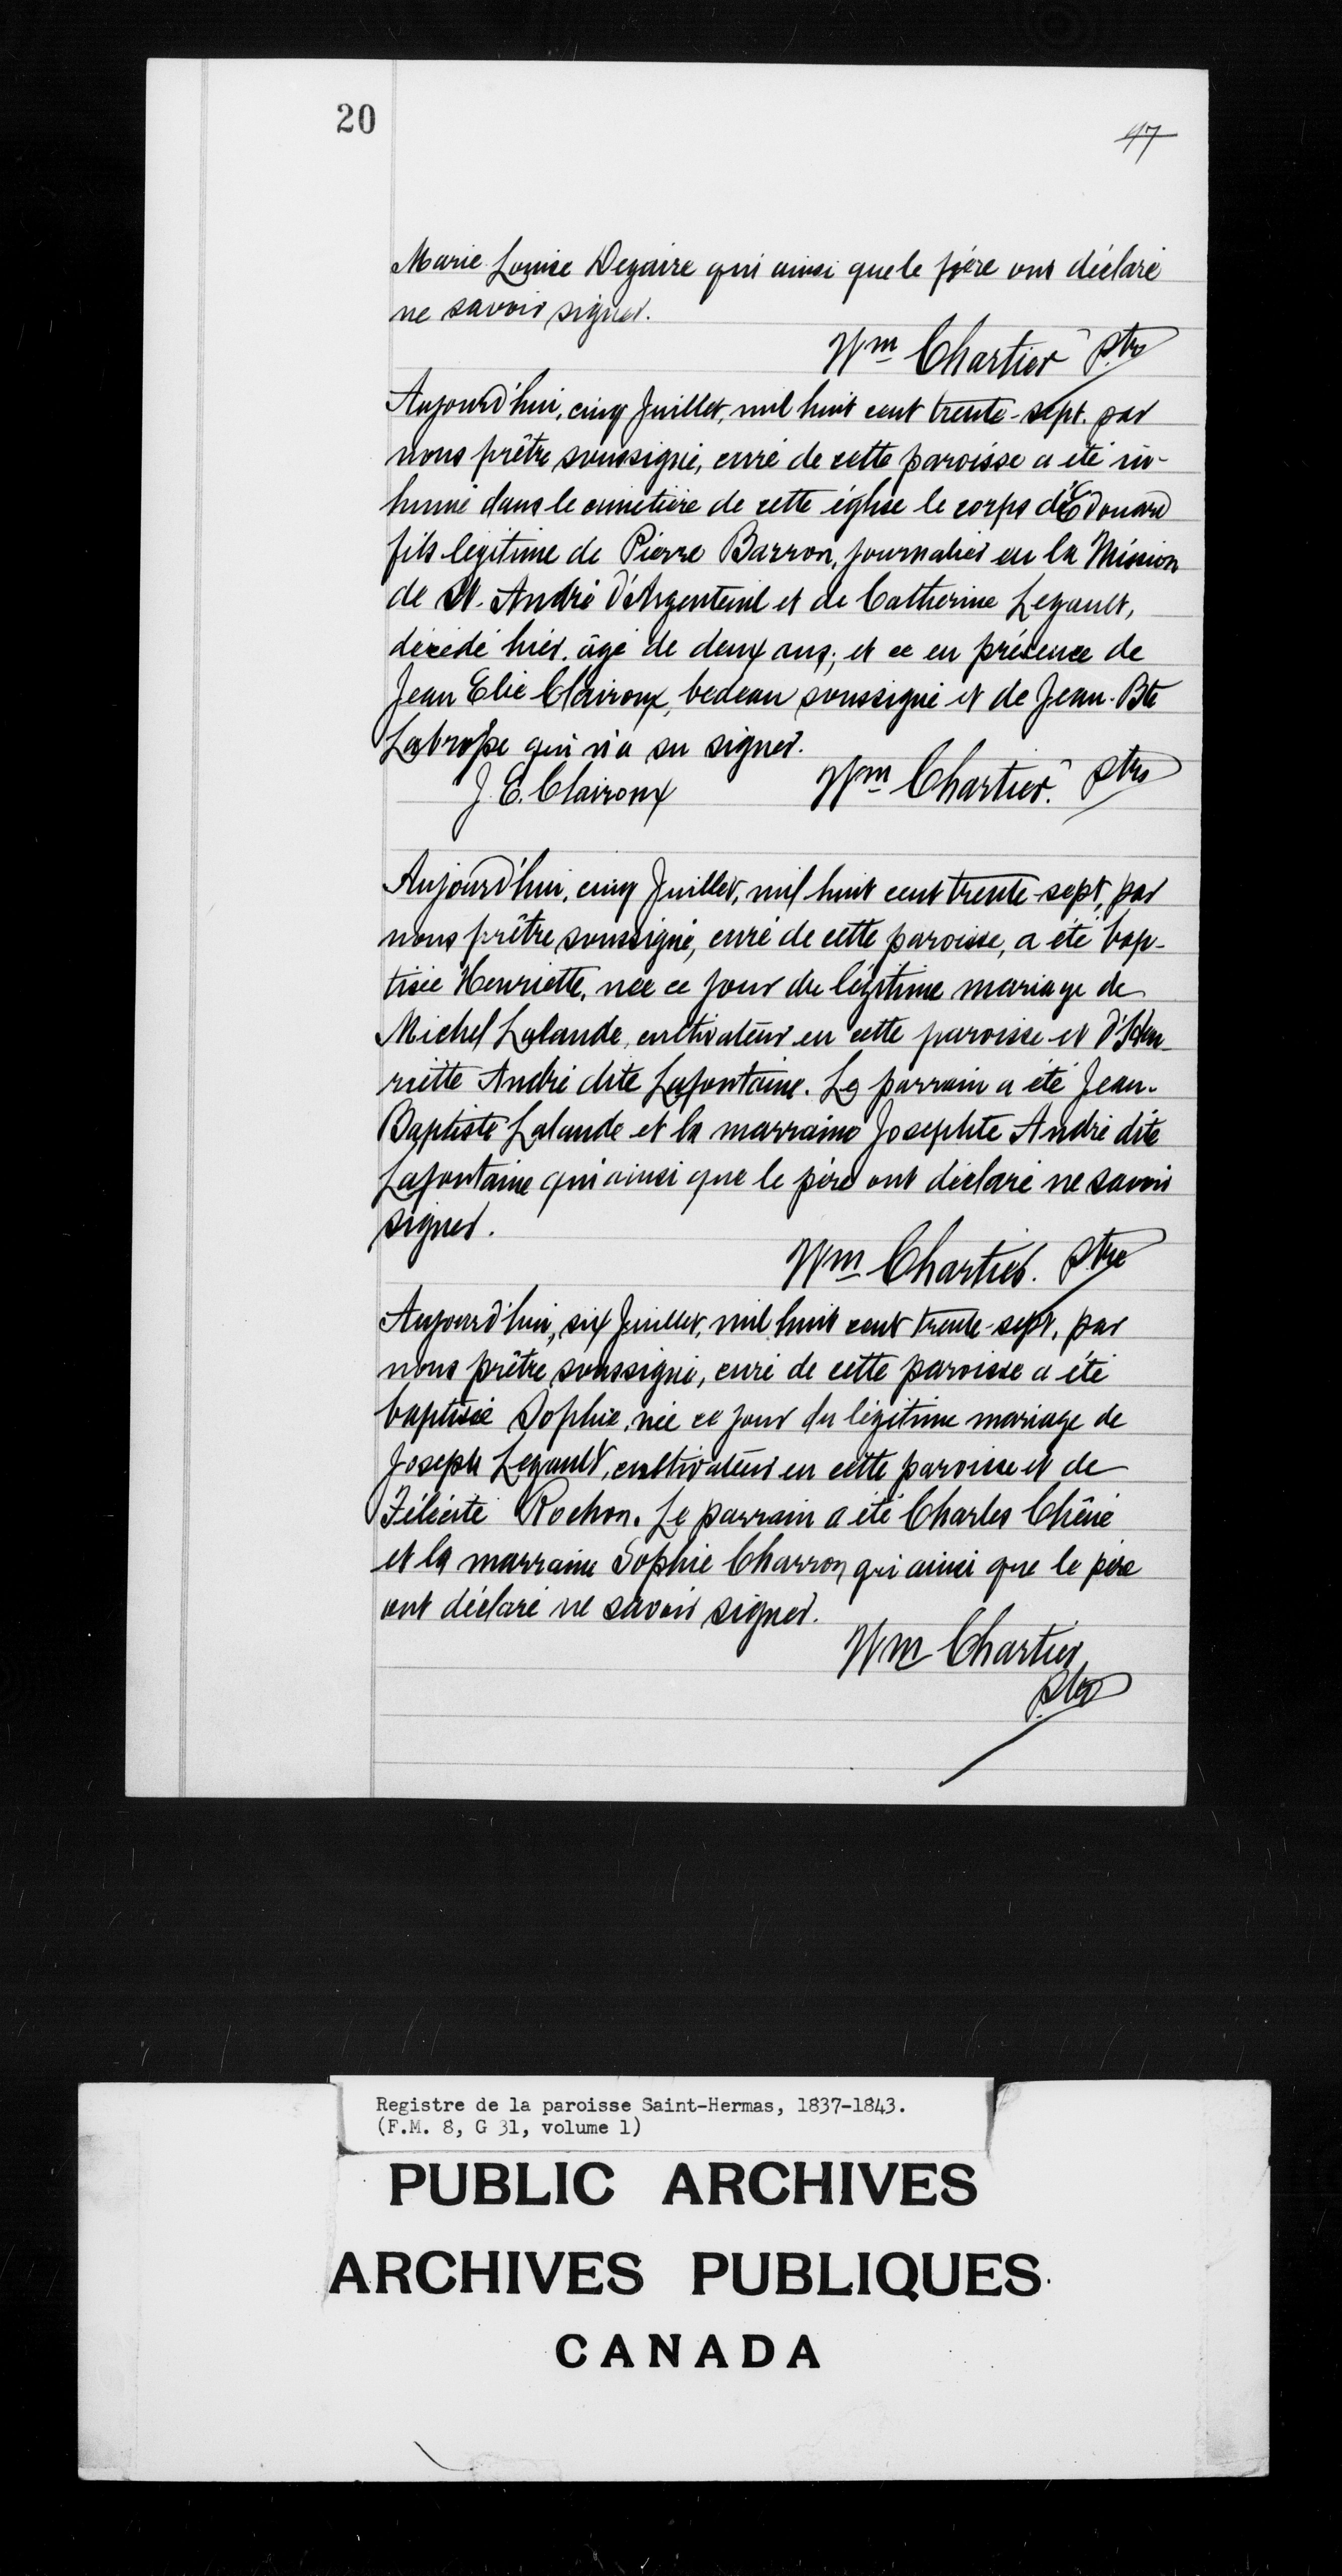 20
47
Marie Louise Degaire qui ainsi que le père ont déclaré
ne savoir signer.
Wm Chartier Ptre
Aujourd'hui, cinq Juillet, mil huit cent trente-sept. par
nous prêtre soussigné, curé de cette paroisse a été in-
humé dans le cimetière de cette église le corps d'Edouard
fils legitime de Pierre Barron, journalier en la Mission
de St. André d'Argenteuil et de Catherine Legault,
décédé hier. âgé de deux ans; et ce en présence de
Jean Elie Clairoux, bedeau soussigné et de Jean-Bte
Labrosse qui n'a su signer.
J. E. Clairoux Wm Chartier. Ptre
Aujourd'hui, cinq Juillet, mil huit cent trente-sept, par
nous prêtre soussigné, curé de cette paroisse, a été bap-
tisée Henriette, née ce jour du légitime mariage de
Michel Lalande, cultivateur en cette paroisse et d'Hen-
riette André dite Lafontaine. Le parrain a été Jean-
Baptiste Lalande et la marraine Josephte André dite
Lafontaine qui ainsi que le père ont déclaré ne savoir
signer.
Wm Chartier. Ptre
Aujourd'hui, six Juillet, mil huit cent trente-sept, par
nous prêtre soussigné, curé de cette paroisse a été
baptisée Sophie, née ce jour du légitime mariage de
Joseph Legault, cultivateur en cette paroisse et de
Félicité Rochon. Le parrain a été Charles Chêné
et la marraine Sophie Charron qui ainsi que le père
ont déclaré ne savoir signer.
Wm Chartier
Ptre
Registre de la paroisse Saint-Hermas, 1837-1843.
(F.M. 8, G 31, volume 1)
PUBLIC ARCHIVES
ARCHIVES PUBLIQUES
CANADA